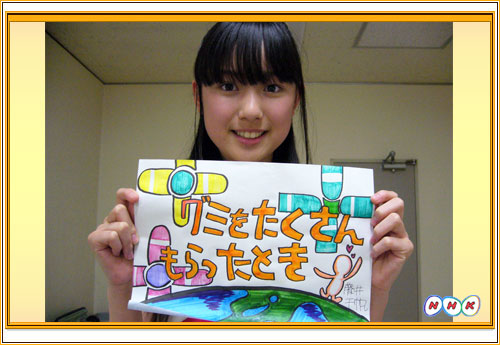 グミをたくさん
もらったとき
NHK